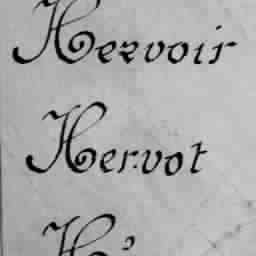 Hervoir
Hervot